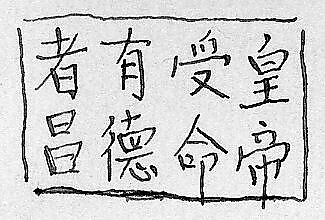 皇帝
受命
有德
者昌